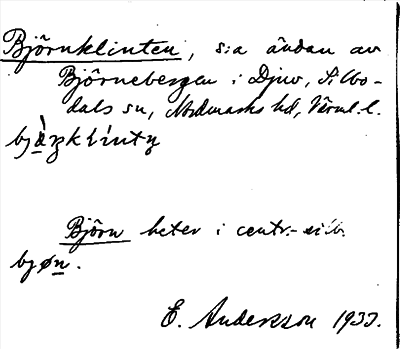 Björnklinten, s:a ändan av
Björnebergen i Djuv, Silbo-
dals sn, Nordmarks hd, Värml. l.
Björn heter i centr.- silb.
bjøn.
E. Andersson 1933.